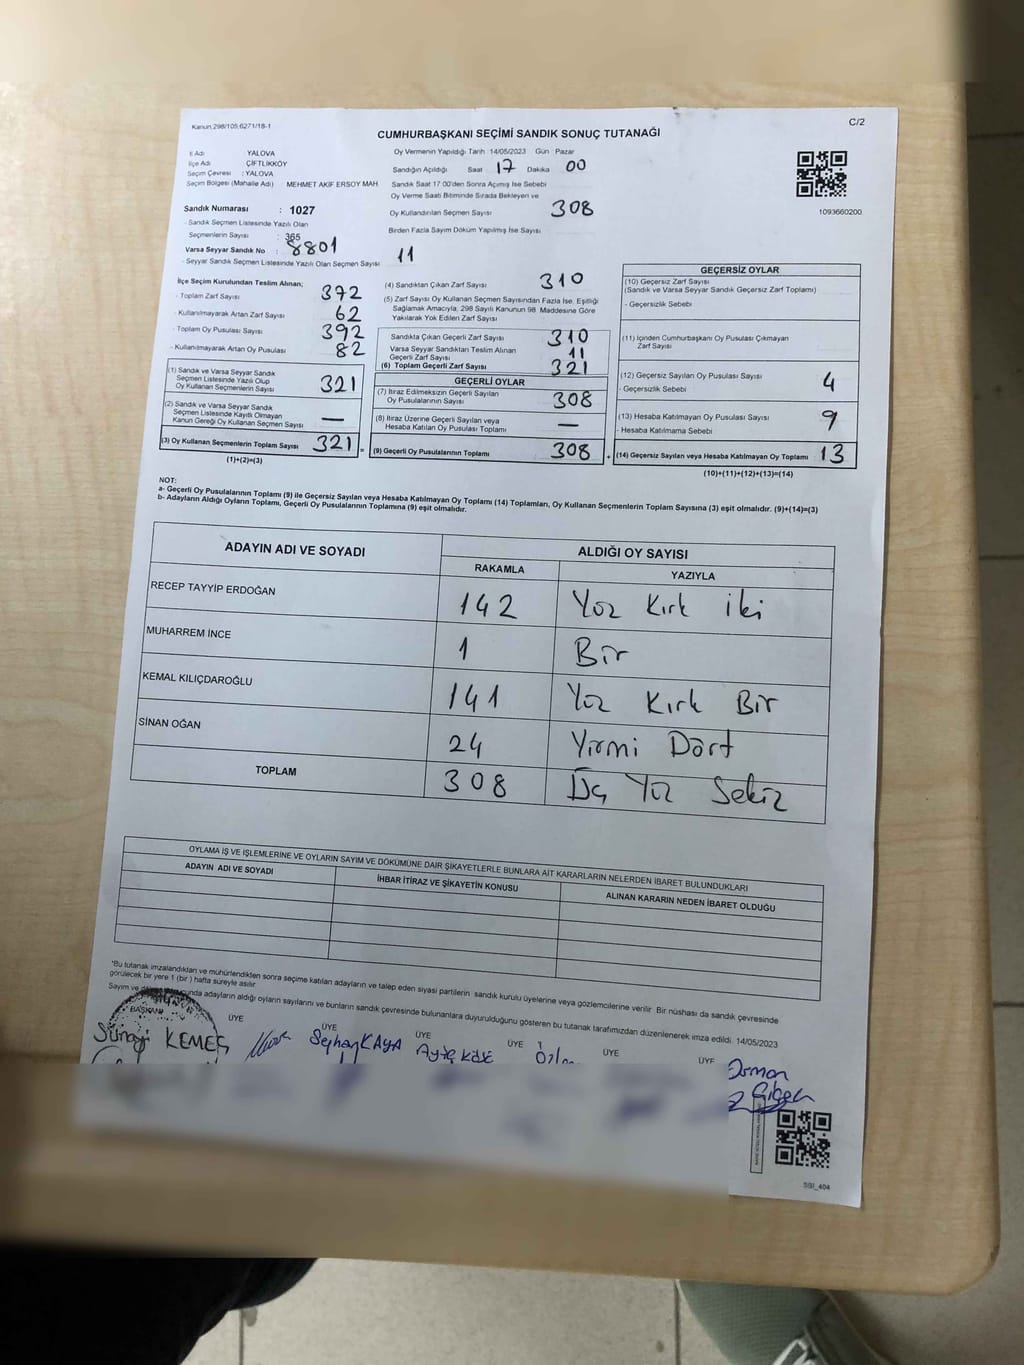 Kanun;298/105;6271/18-1
C/2
CUMHURBAŞKANI SEÇİMİ SANDIK SONUÇ TUTANAĞI
İl Adı : YALOVA
İlçe Adı : ÇİFTLİKKÖY
Seçim Çevresi : YALOVA
Seçim Bölgesi (Mahalle Adı) : MEHMET AKİF ERSOY MAH
Sandık Numarası : 1027
- Sandık Seçmen Listesinde Yazılı Olan
Seçmenlerin Sayısı : 365
Varsa Seyyar Sandık No : 8801
- Seyyar Sandık Seçmen Listesinde Yazılı Olan Seçmen Sayısı 11
Oy Vermenin Yapıldığı Tarih :14/05/2023 Gün : Pazar
Sandığın Açıldığı Saat 17 Dakika 00
Sandık Saat 17:00'den Sonra Açılmış İse Sebebi
Oy Verme Saati Bitiminde Sırada Bekleyen ve
Oy Kullandırılan Seçmen Sayısı 308
Birden Fazla Sayım Döküm Yapılmış İse Sayısı
1093660200
İlçe Seçim Kurulundan Teslim Alınan;
- Toplam Zarf Sayısı 372
- Kullanılmayarak Artan Zarf Sayısı 62
- Toplam Oy Pusulası Sayısı 392
- Kullanılmayarak Artan Oy Pusulası 82
(1) Sandık ve Varsa Seyyar Sandık
Seçmen Listesinde Yazılı Olup
Oy Kullanan Seçmenlerin Sayısı 321
(2) Sandık ve Varsa Seyyar Sandık
Seçmen Listesinde Kayıtlı Olmayan
Kanun Gereği Oy Kullanan Seçmen Sayısı —
(3) Oy Kullanan Seçmenlerin Toplam Sayısı 321
(1)+(2)=(3)
(4) Sandıktan Çıkan Zarf Sayısı 310
(5) Zarf Sayısı Oy Kullanan Seçmen Sayısından Fazla İse, Eşitliği
Sağlamak Amacıyla, 298 Sayılı Kanunun 98. Maddesine Göre
Yakılarak Yok Edilen Zarf Sayısı
Sandıkta Çıkan Geçerli Zarf Sayısı 310
Varsa Seyyar Sandıktan Teslim Alınan
Geçerli Zarf Sayısı 11
(6) Toplam Geçerli Zarf Sayısı 321
GEÇERLİ OYLAR
(7) İtiraz Edilmeksizin Geçerli Sayılan
Oy Pusulalarının Sayısı 308
(8) İtiraz Üzerine Geçerli Sayılan veya
Hesaba Katılan Oy Pusulası Toplamı —
(9) Geçerli Oy Pusulalarının Toplamı 308
GEÇERSİZ OYLAR
(10) Geçersiz Zarf Sayısı
(Sandık ve Varsa Seyyar Sandık Geçersiz Zarf Toplamı)
- Geçersizlik Sebebi
(11) İçinden Cumhurbaşkanı Oy Pusulası Çıkmayan
Zarf Sayısı
(12) Geçersiz Sayılan Oy Pusulası Sayısı 4
- Geçersizlik Sebebi
(13) Hesaba Katılmayan Oy Pusulası Sayısı 9
- Hesaba Katılmama Sebebi
(14) Geçersiz Sayılan veya Hesaba Katılmayan Oy Toplamı 13
(10)+(11)+(12)+(13)=(14)
NOT:
a- Geçerli Oy Pusulalarının Toplamı (9) ile Geçersiz Sayılan veya Hesaba Katılmayan Oy Toplamı (14) Toplamları, Oy Kullanan Seçmenlerin Toplam Sayısına (3) eşit olmalıdır. (9)+(14)=(3)
b- Adayların Aldığı Oyların Toplamı, Geçerli Oy Pusulalarının Toplamına (9) eşit olmalıdır.
ADAYIN ADI VE SOYADI
ALDIĞI OY SAYISI
RAKAMLA YAZIYLA
RECEP TAYYİP ERDOĞAN 142 Yüz Kırk iki
MUHARREM İNCE 1 Bir
KEMAL KILIÇDAROĞLU 141 Yüz Kırk Bir
SİNAN OĞAN 24 Yirmi Dört
TOPLAM 308 Üç Yüz Sekiz
OYLAMA İŞ VE İŞLEMLERİNE VE OYLARIN SAYIM VE DÖKÜMÜNE DAİR ŞİKAYETLERLE BUNLARA AİT KARARLARIN NELERDEN İBARET BULUNDUKLARI
ADAYIN ADI VE SOYADI
İHBAR İTİRAZ VE ŞİKAYETİN KONUSU
ALINAN KARARIN NEDEN İBARET OLDUĞU
*Bu tutanak imzalandıktan ve mühürlendikten sonra seçime katılan adayların ve talep eden siyasi partilerin sandık kurulu üyelerine veya gözlemcilerine verilir. Bir nüshası da sandık çevresinde
görülecek bir yere 1 (bir) hafta süreyle asılır.
Sayım ve unda adayların aldığı oyların sayılarını ve bunların sandık çevresinde bulunanlara duyurulduğunu gösteren bu tutanak tarafımızdan düzenlenerek imza edildi. 14/05/2023
BAŞKAN ÜYE ÜYE ÜYE ÜYE ÜYE ÜYE
KEMEÇ Seyhan KAYA
Osman
SBI_404